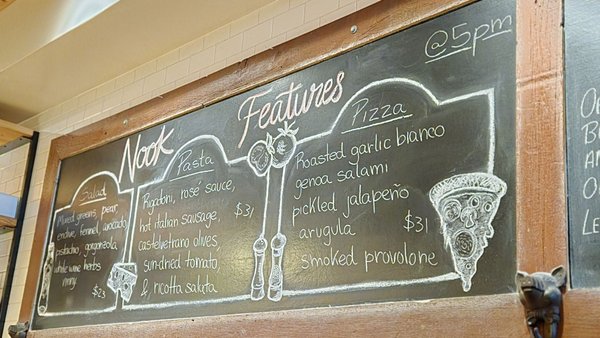 Nook Features @5pm
Salad
Mixed greens, pear,
endive, fennel, avocado,
pistachio, gorgonzola,
white wine herbs
$23
Pasta
Rigatoni, rosé sauce,
hot italian sausage,
castelvetrano olives,
sun-dried tomato,
& ricotta salata
$31
Pizza
Roasted garlic bianco
genoa salami
pickled jalapeño
arugula
smoked provolone
$31